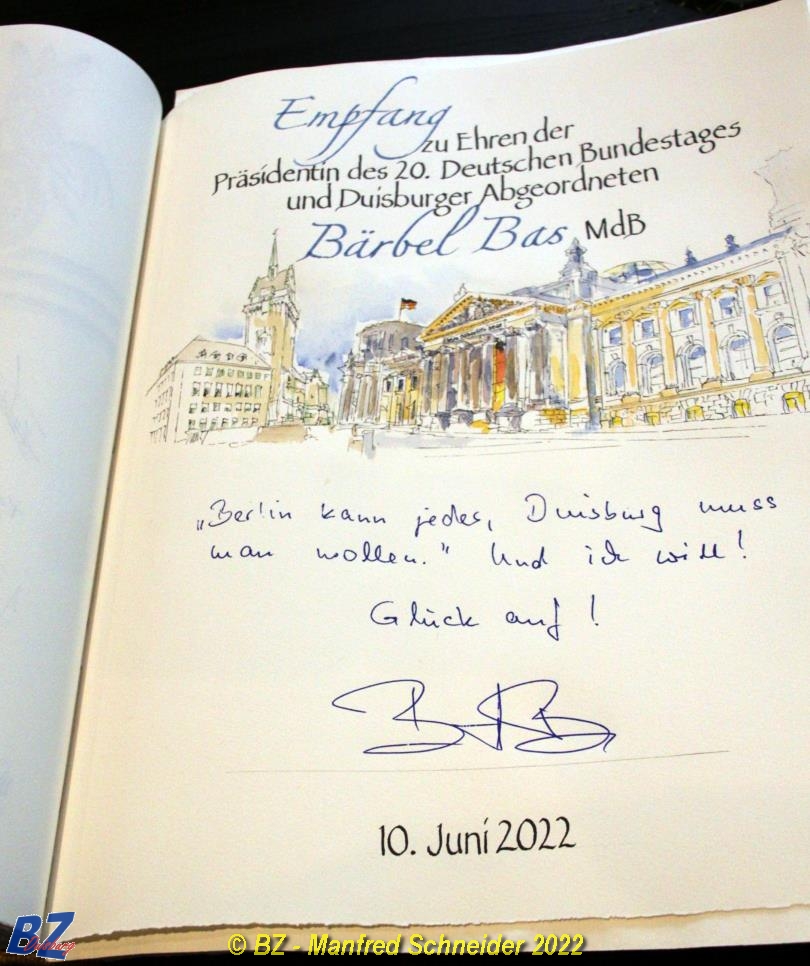 Empfang
zu Ehren der
Präsidentin des 20. Deutschen Bundestages
und Duisburger Abgeordneten
Bärbel Bas MdB
„Berlin kann jeder, Duisburg muss
man wollen." Und ich will!
Glück auf!
10. Juni 2022
BZ
Duisburg
© BZ - Manfred Schneider 2022